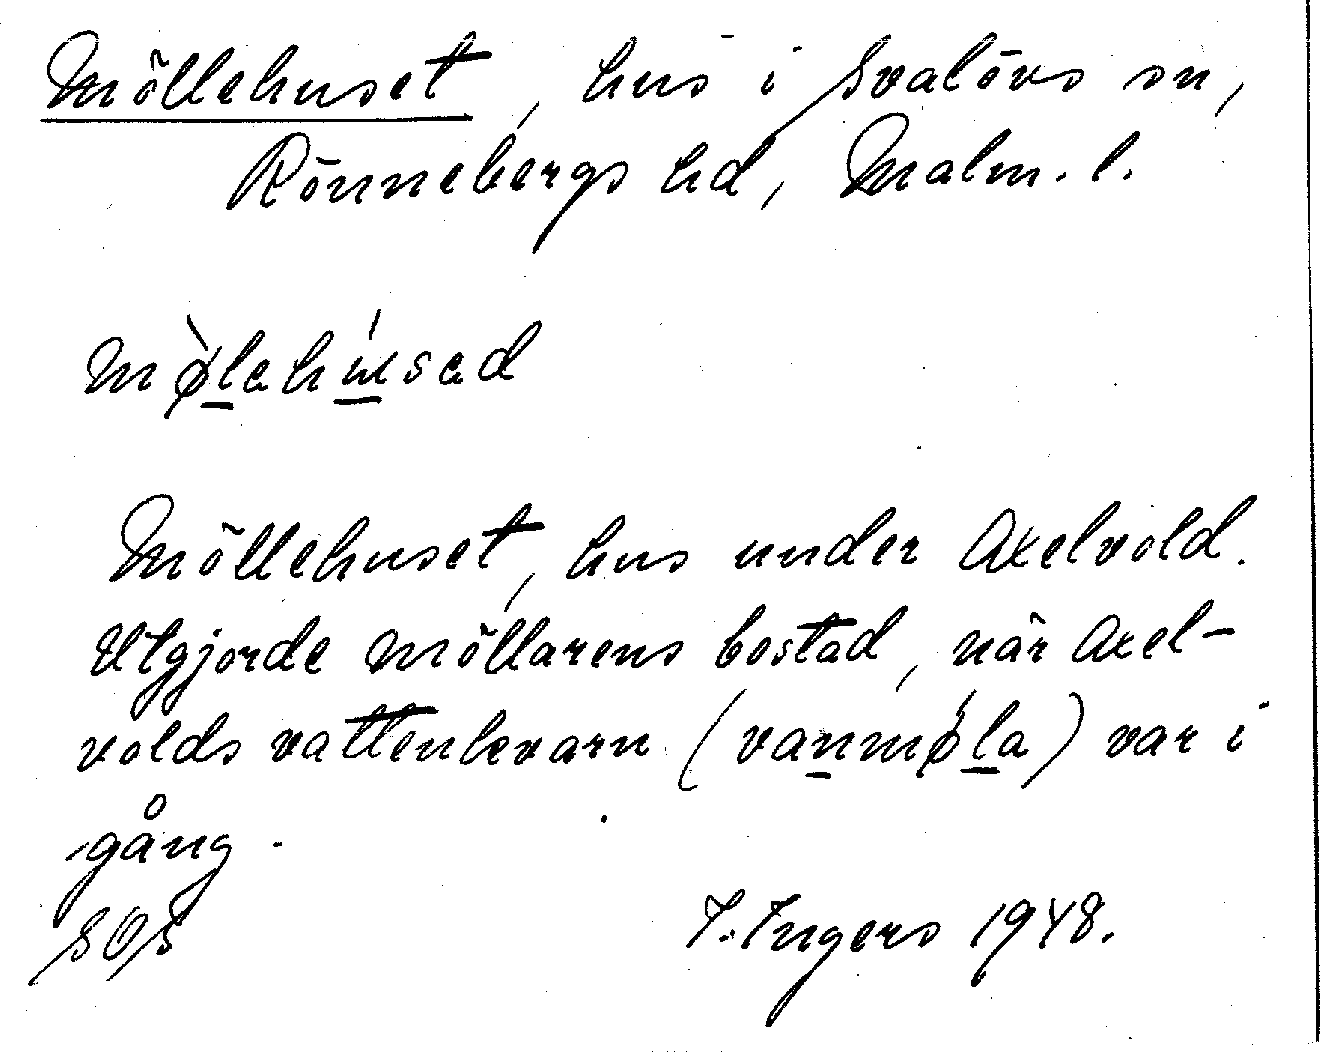 Möllehuset, hus i Svalövs sn,
Rönnebergs hd, Malm. l.
Möllehuset, hus under Axelvold.
Utgjorde möllarens bostad, när Axel-
volds vattenkvarn (vanmøla) var i
gång.
SOS
I. Ingers 1948.